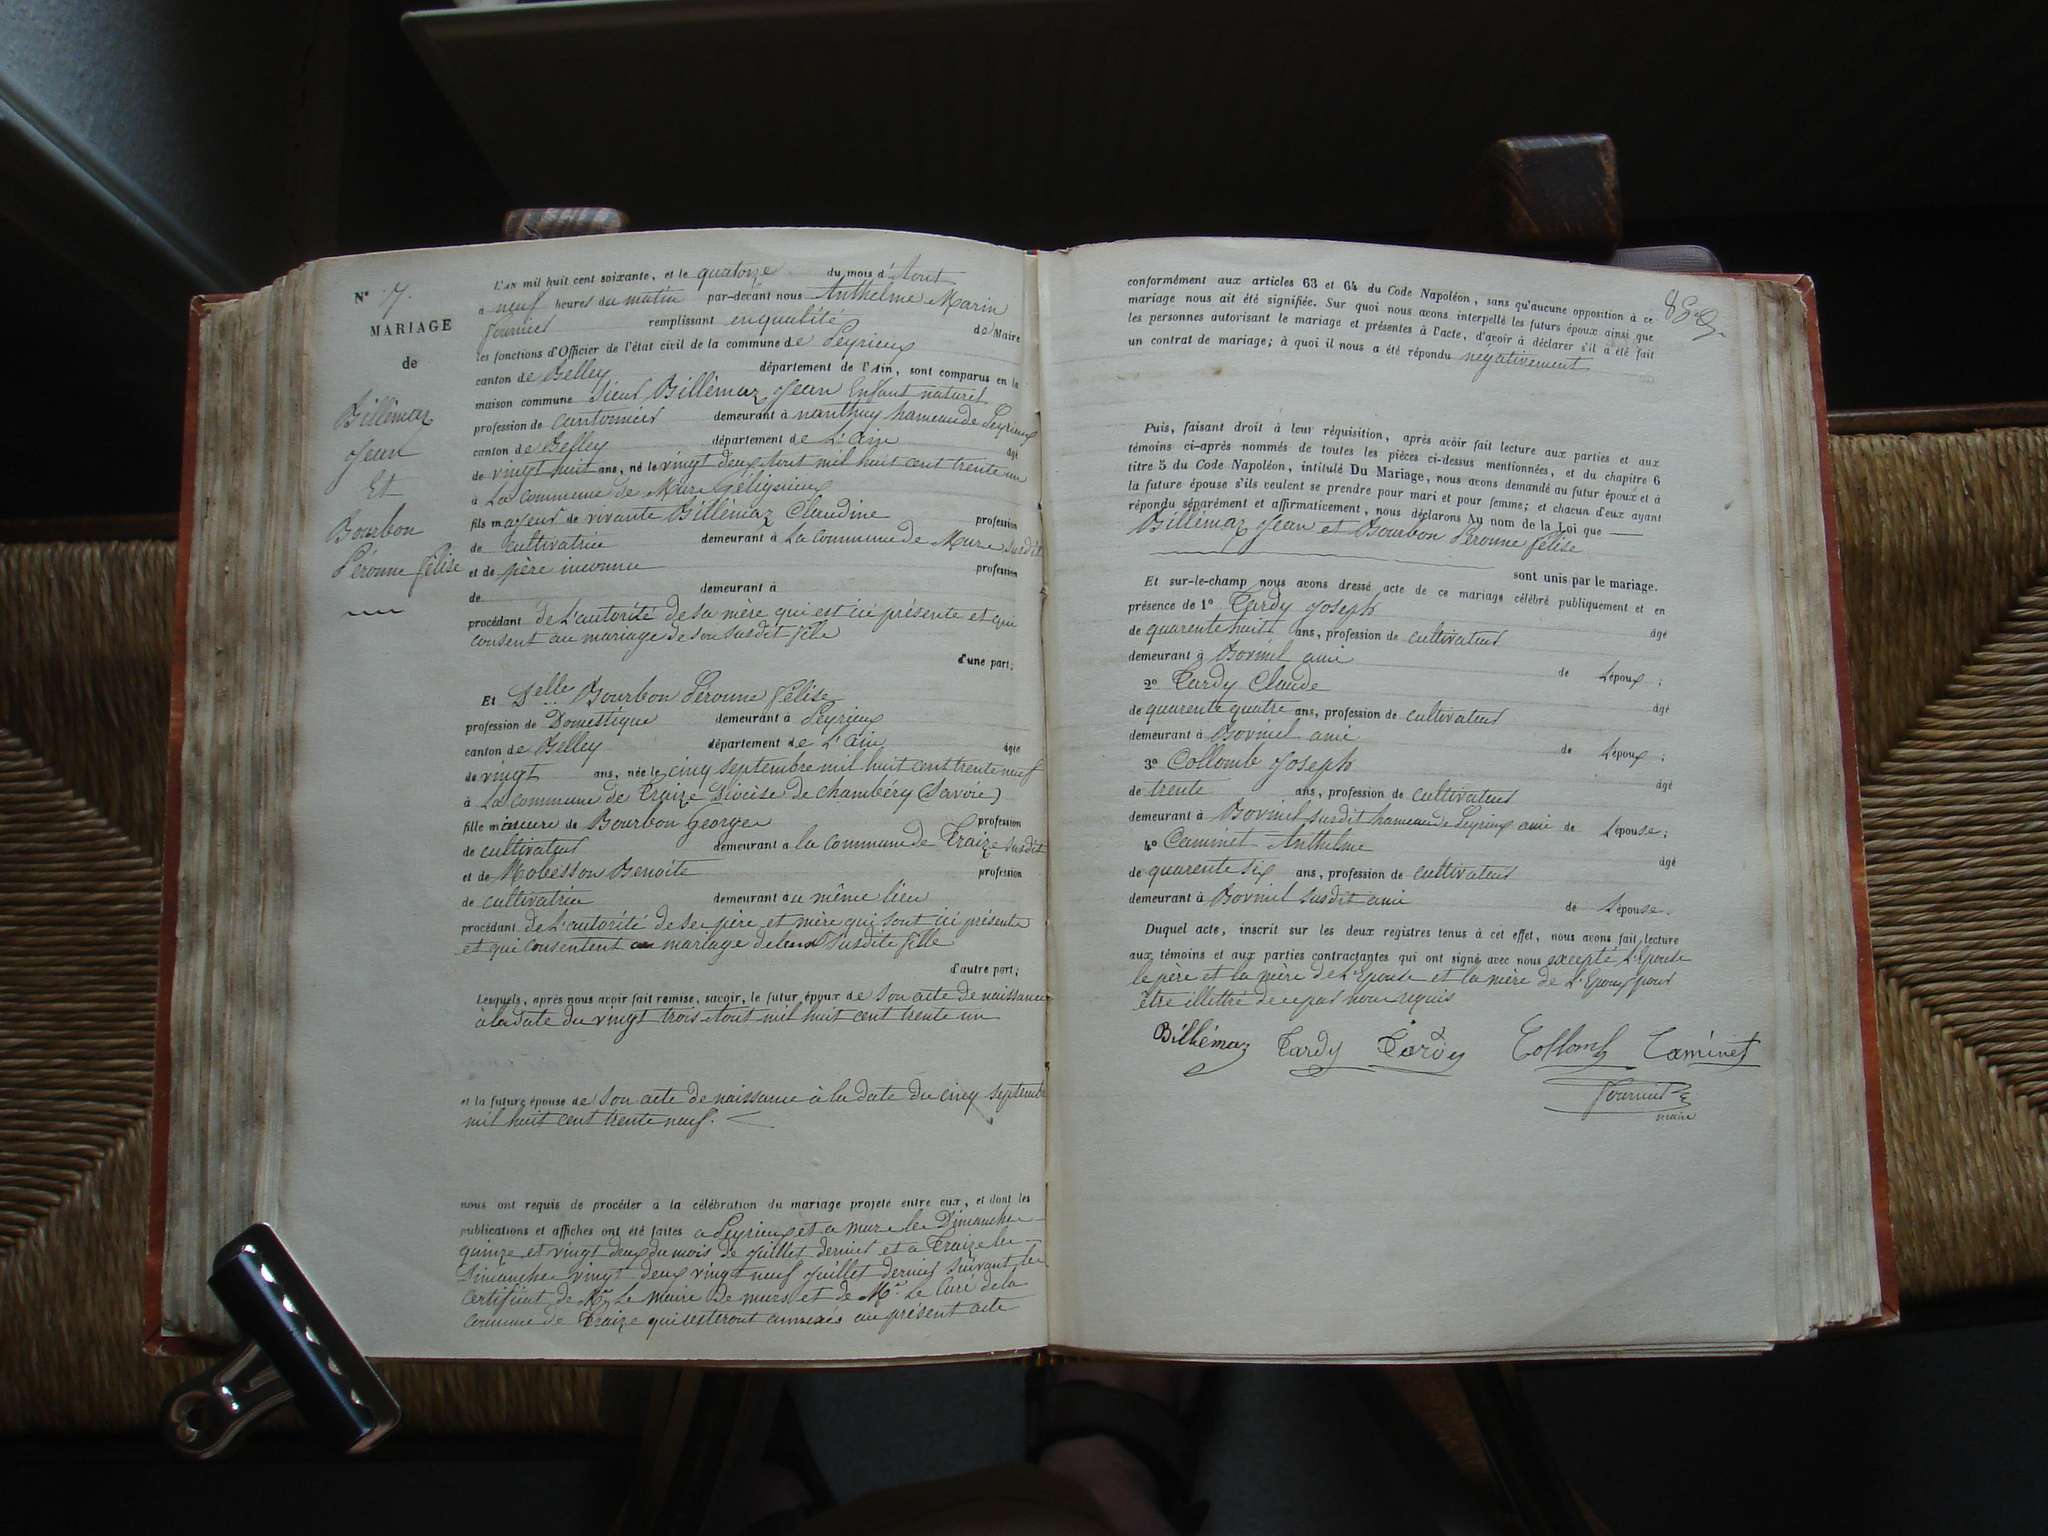 N° 7.
MARIAGE
de
Billémaz
Jean
Et
Bourbon
Péronne félise
L'AN mil huit cent soixante, et le quatorze du mois d'Aout
à neuf heures du matin par-devant nous Anthelme Marin
fournier remplissant en qualité de Maire
les fonctions d'Officier de l'état civil de la commune de Peyrieux
canton de Belley département de l'Ain, sont comparus en la
maison commune Sieur Billémaz Jean Enfant naturel
profession de cantonnier demeurant à nanthuy hameau de Peyrieux
canton de Belley département de L'ain âgé
de vingt huit ans, né le vingt deux Aout mil huit cent trente un
à La commune de Mure Gélignieux
fils majeur de vivante Billémaz Claudine profession
de cultivatrice demeurant à La commune de Mure susdit
et de père inconnu profession
de demeurant à
procédant de L'autorité de sa mère qui est ici présente et qui
consent au mariage de son susdit fils
d'une part;
Et Delle Bourbon Péronne félise
profession de Domestique demeurant à Peyrieux
canton de Belley département de L'ain âgée
de vingt ans, née le cinq septembre mil huit cent trente neuf
à La commune de Traize Diocèse de Chambéry (Savoie)
fille mineure de Bourbon George profession
de cultivateur demeurant à la commune de Traize susdit
et de Mobesson Benoite profession
de cultivatrice demeurant au même lieu
procédant de L'autorité de ses père et mère qui sont ici présents
et qui consentent au mariage de leur susdite fille
d'autre part;
Lesquels, après nous avoir fait remise, savoir, le futur époux de Son acte de naissance
à la date du vingt trois Aout mil huit cent trente un
et la future épouse de Son acte de naissance à la date du cinq septembre
mil huit cent trente neuf.
nous ont requis de procéder à la célébration du mariage projeté entre eux, et dont les
publications et affiches ont été faites à Peyrieux et à Mure les Dimanches
quinze et vingt deux du mois de Juillet dernier et à Traize les
Dimanches vingt deux vingt neuf Juillet dernier suivant les
certificat de Mr Le Maire de murs et de Mr Le Curé de la
commune de Traize qui resteront annexés au présent acte
conformément aux articles 63 et 64 du Code Napoléon, sans qu'aucune opposition à ce
mariage nous ait été signifiée. Sur quoi nous avons interpellé les futurs époux ainsi que
les personnes autorisant le mariage et présentes à l'acte, d'avoir à déclarer s'il a été fait
un contrat de mariage; à quoi il nous a été répondu négativement
Puis, faisant droit à leur réquisition, après avoir fait lecture aux parties et aux
témoins ci-après nommés de toutes les pièces ci-dessus mentionnées, et du chapitre 6
titre 5 du Code Napoléon, intitulé Du Mariage, nous avons demandé au futur époux et à
la future épouse s'ils veulent se prendre pour mari et pour femme; et chacun d'eux ayant
répondu séparément et affirmativement, nous déclarons Au nom de la Loi que
Billémaz Jean et Bourbon Péronne félise
sont unis par le mariage.
Et sur-le-champ nous avons dressé acte de ce mariage célébré publiquement et en
présence de 1° Tardy Joseph âgé
de quarente huitt ans, profession de cultivateur
demeurant à Bovinel ami de L'époux;
2° Tardy Claude âgé
de quarente quatre ans, profession de cultivateur
demeurant à Bovinel ami de L'époux;
3° Collomb Joseph âgé
de trente ans, profession de cultivateur
demeurant à Bovinel susdit hameau de Peyrieux ami de L'épouse;
4° Caminet Anthelme âgé
de quarente six ans, profession de cultivateur
demeurant à Bovinel susdit ami de L'épouse.
Duquel acte, inscrit sur les deux registres tenus à cet effet, nous avons fait lecture
aux témoins et aux parties contractantes qui ont signé avec nous excepté L'Epouse
le père et la mère de L'Epouse et la mère de L'Epoux pour
être illettré de ce par nous requis
Billémaz Tardy Tardy Collomb Caminet
Fournier
maire